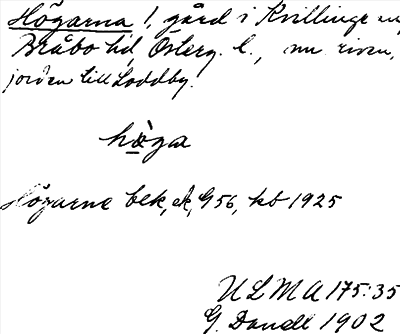 Högarna 1, gård i Kvillinge
Bråbo hd, Österg. l., nu riven,
jorden till Loddby.
hö̀ga
Högarne ek, G56, kb 1925
ULMA 175:35
G. Dandl 1902